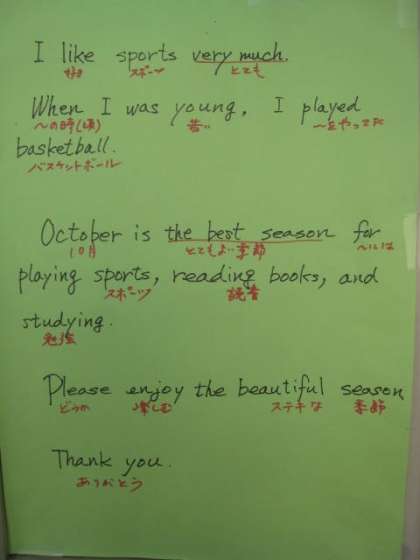 I like sports very much.
好き スポーツ とても
When I was young, I played
～の時(頃) 若い ～をやってた
basketball.
バスケットボール
October is the best season for
10月 とてもよい季節 ～には
playing sports, reading books, and
スポーツ 読書
studying.
勉強
Please enjoy the beautiful season
どうか 楽しむ ステキな 季節
Thank you.
ありがとう